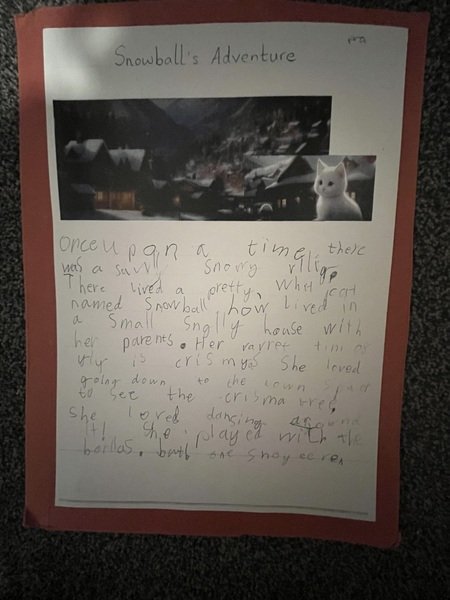 Snowball's Adventure
Once upon a time, there
was a smll snowy villig,
There lived a pretty, whit cat
named Snowball how lived in
a small snglly house with
her parents. Her favret tim of
is crismys. She loved
going down to the town
to see the crisma tree,
She loved dansing around
it! She played with the
borllas. buth one snoy